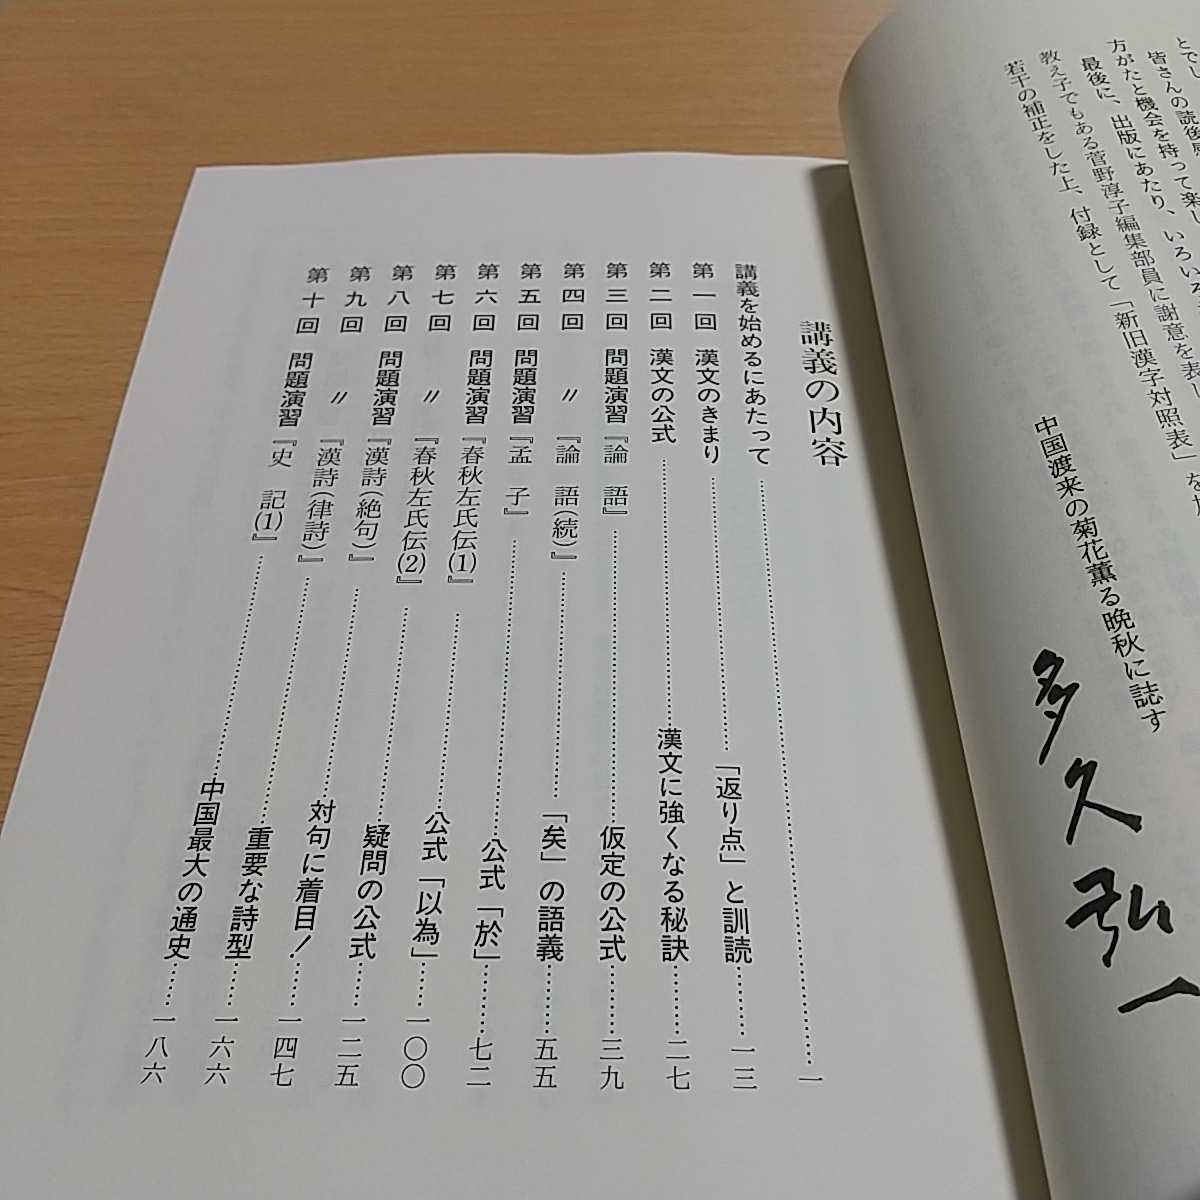 とでし
皆さんの読後感
方がたと機会を持って楽し
最後に、出版にあたり、いろいろ
教え子でもある菅野淳子編集部員に謝意を表し
若干の補正をした上、付録として「新旧漢字対照表」を
中国渡来の菊花薫る晩秋に誌す
多久弘一
講義の内容
講義を始めるにあたって……一
第一回 漢文のきまり……「返り点」と訓読……一三
第二回 漢文の公式……漢文に強くなる秘訣……二七
第三回 問題演習『論 語』……仮定の公式……三九
第四回 〃 『論 語(続)』……「矣」の語義……五五
第五回 問題演習『孟 子』……公式「於」……七二
第六回 問題演習『春秋左氏伝(1)』……公式「以為」……一〇〇
第七回 〃 『春秋左氏伝(2)』……疑問の公式……一二五
第八回 問題演習『漢詩(絶句)』……対句に着目!……一四七
第九回 〃 『漢詩(律詩)』……重要な詩型……一六六
第十回 問題演習『史 記(1)』……中国最大の通史……一八六